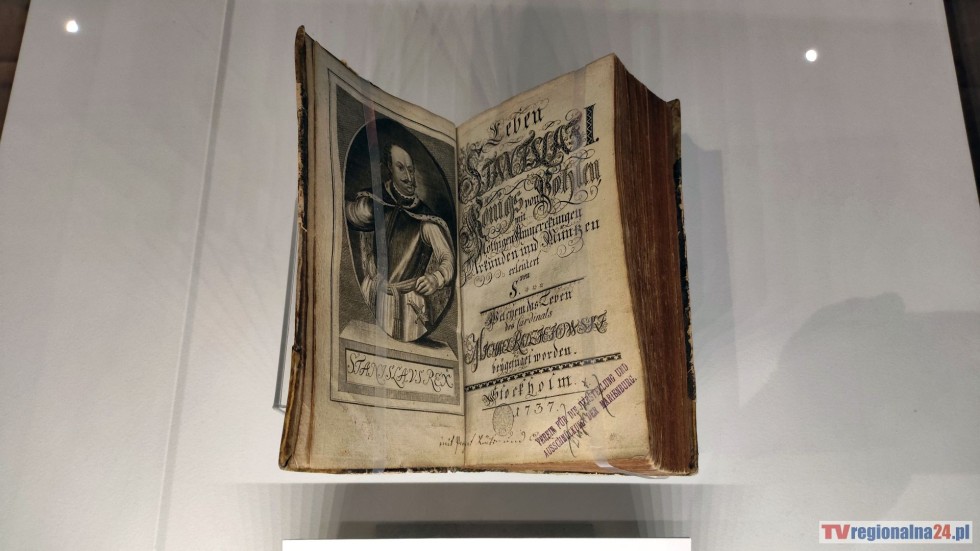 STANISLAVS REX
Leben
STANISLAI I.
Königs von Pohlen
mit
Nöthigen Anmerckungen
Urkunden und Müntzen
erleutert
von
S...
Welchem das Leben
des Cardinals
beygefüget worden.
Stockholm.
1737.
VEREIN FÜR DIE HERSTELLUNG UND
AUSSCHMÜCKUNG DER MARIENBURG.
TVregionalna24.pl